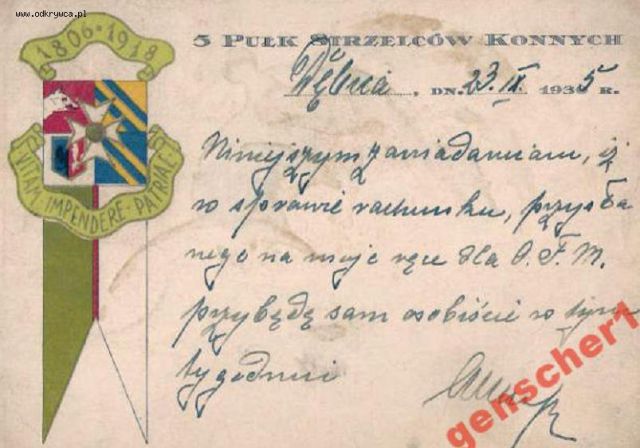 www.odkrywca.pl
1806 · 1918
VITAM IMPENDERE · PATRIAE
5 PUŁK STRZELCÓW KONNYCH
Dębica, DN. 23 IX 1935 R.
Niniejszym zawiadamiam, iż
w sprawie rachunku, przysła
nego na moje ręce dla O. F. M.
przybędę sam osobiście w tym
tygodniu
genscher1